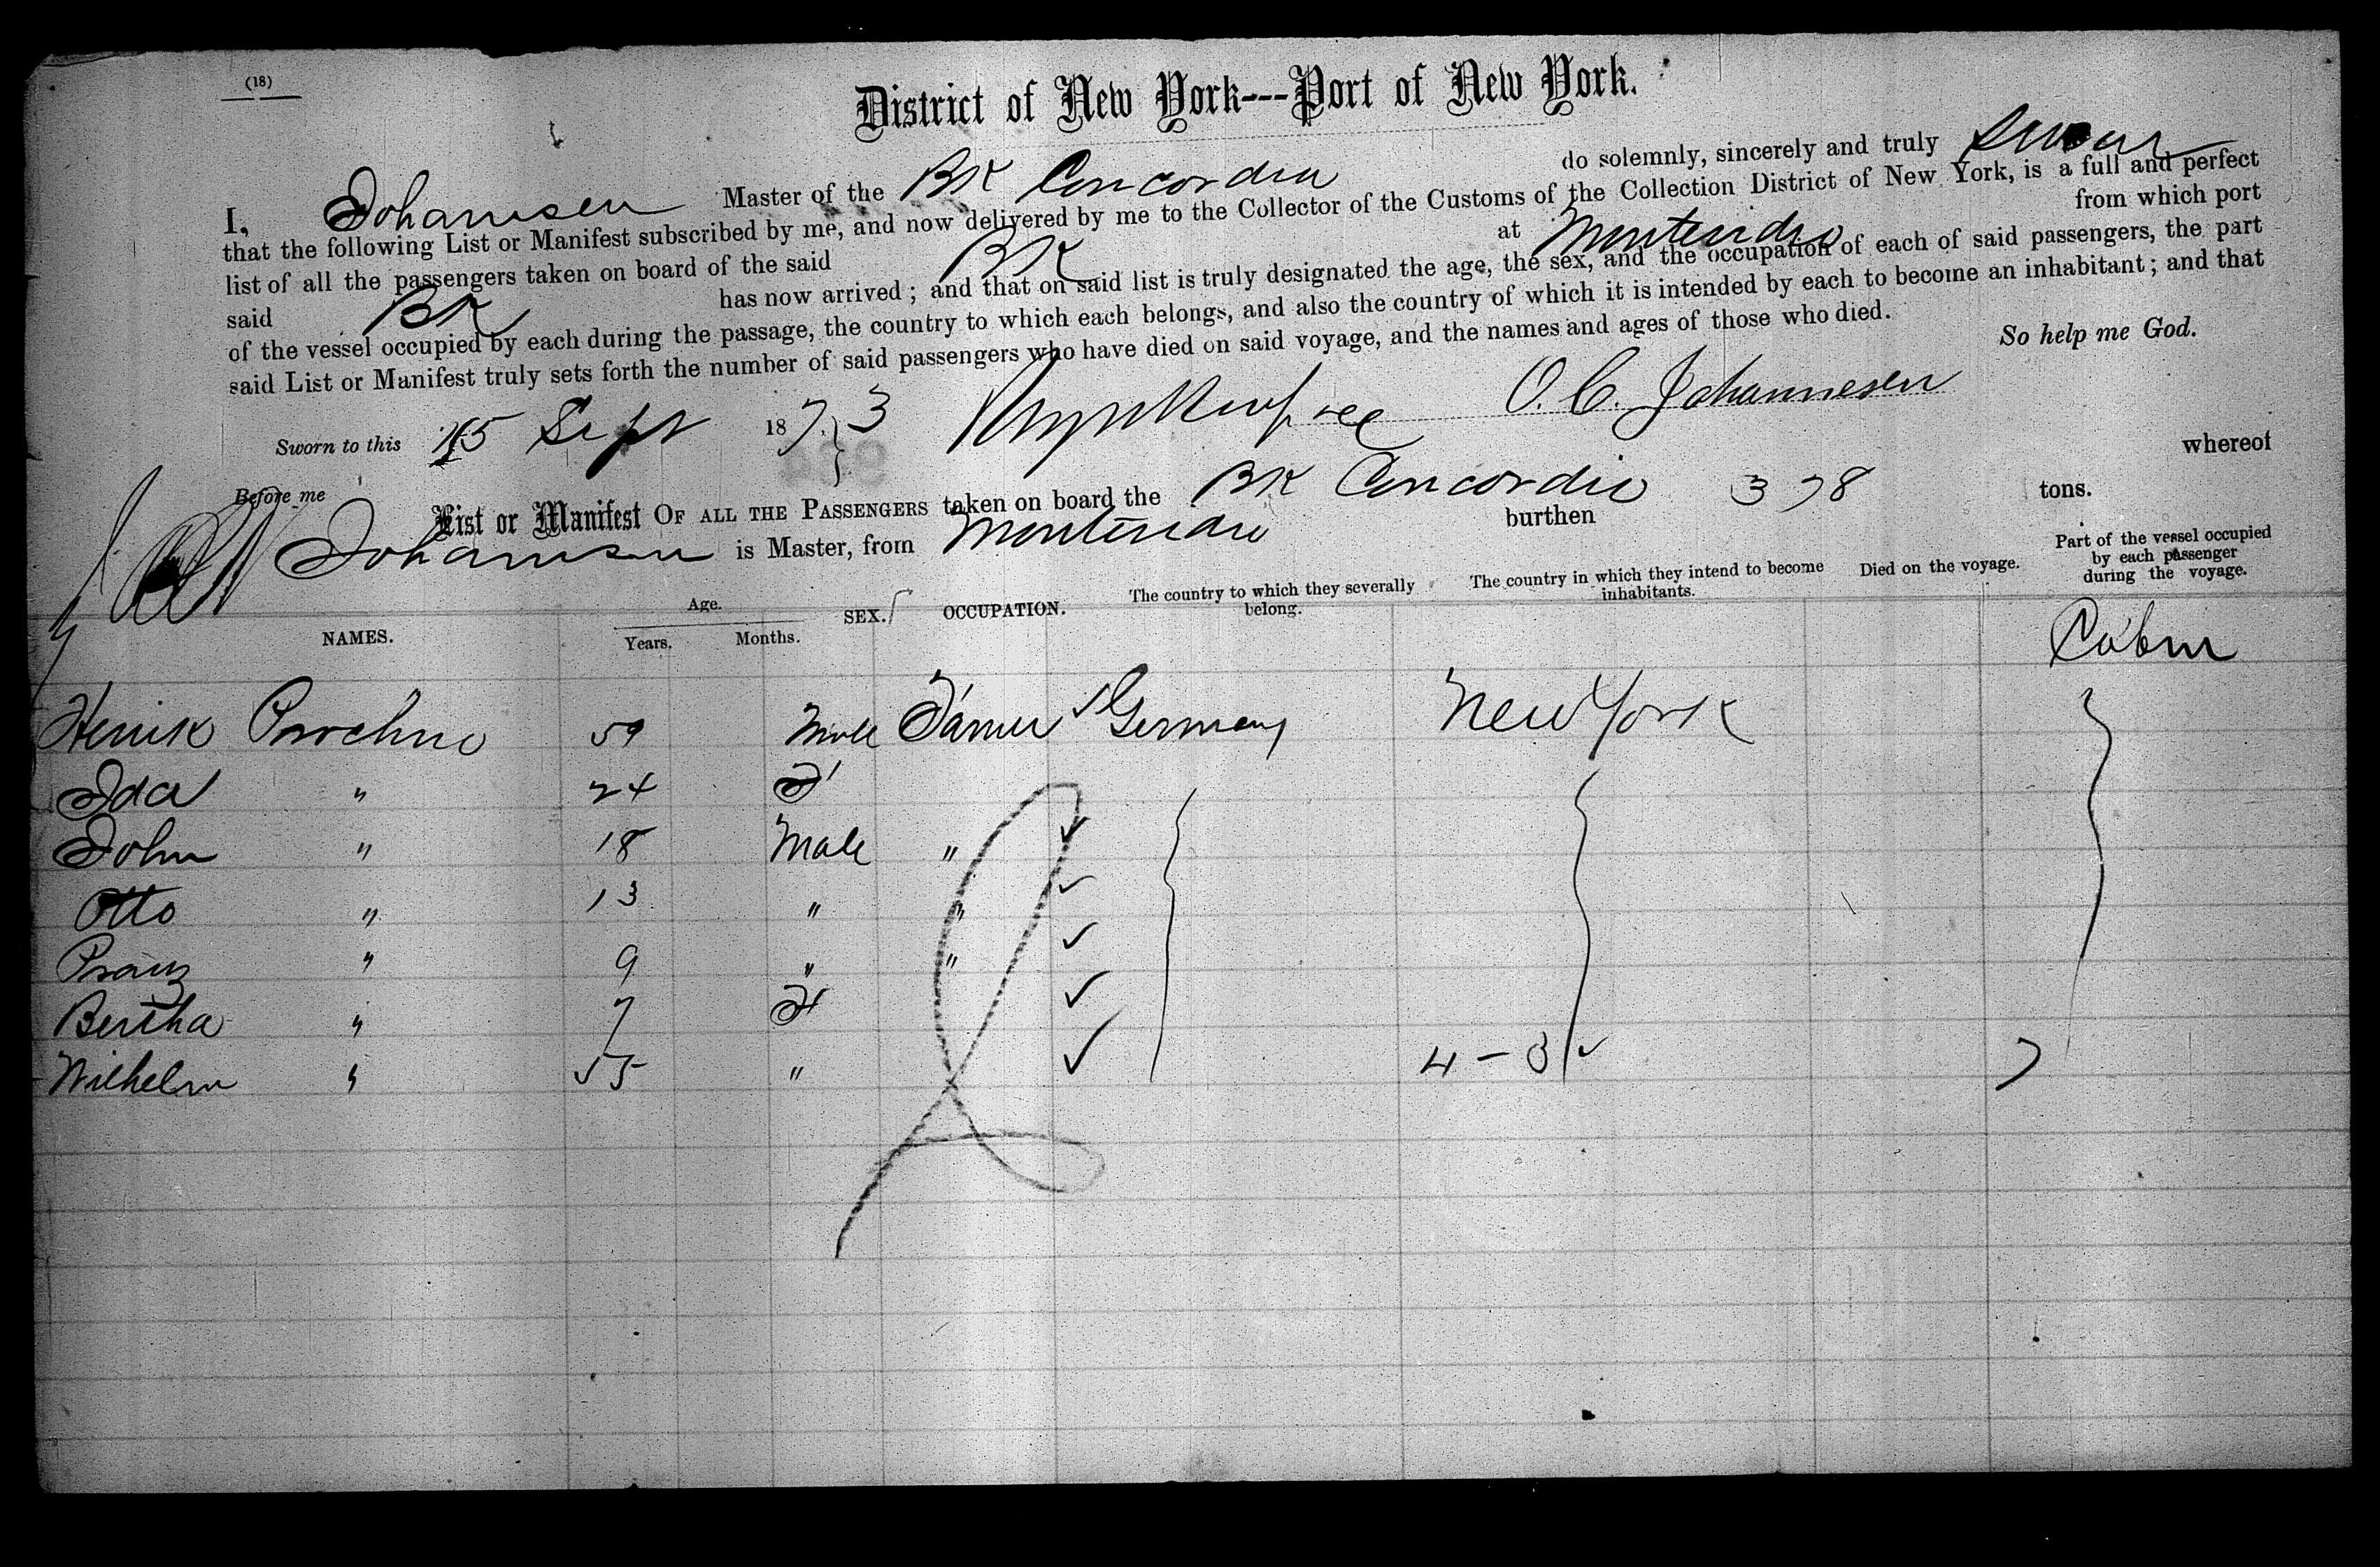 (18)
District of New York---Port of New York.
I, Johannsen Master of the Bk Concordia do solemnly, sincerely and truly swear
that the following List or Manifest subscribed by me, and now delivered by me to the Collector of the Customs of the Collection District of New York, is a full and perfect
list of all the passengers taken on board of the said Bk at Montevideo from which port
said Bk has now arrived; and that on said list is truly designated the age, the sex, and the occupation of each of said passengers, the part
of the vessel occupied by each during the passage, the country to which each belongs, and also the country of which it is intended by each to become an inhabitant; and that
said List or Manifest truly sets forth the number of said passengers who have died on said voyage, and the names and ages of those who died.
So help me God.
Sworn to this 15 Sept 1873 O. C. Johannesen
Before me
List or Manifest OF ALL THE PASSENGERS taken on board the Bk Concordia burthen 378 tons. whereof
Johannsen is Master, from Montevideo
NAMES. Age. Years. Months. SEX. OCCUPATION. The country to which they severally belong. The country in which they intend to become inhabitants. Died on the voyage. Part of the vessel occupied by each passenger during the voyage.
Cabin
Henik 59 Male Farmer Germany New York
Ida " 24 F
John " 18 Male "
Otto " 13 " "
Franz " 9 " "
Bertha " 7 F
Wilhelm " 55 " 4-3 7